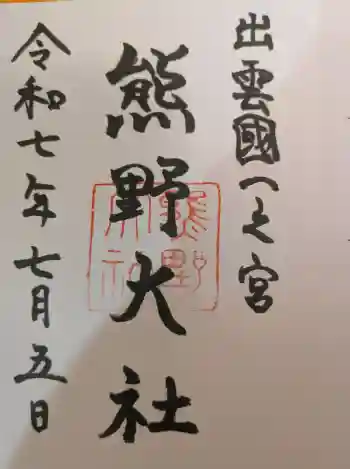 出雲國一之宮
熊野大社
令和七年七月五日
熊野
大社